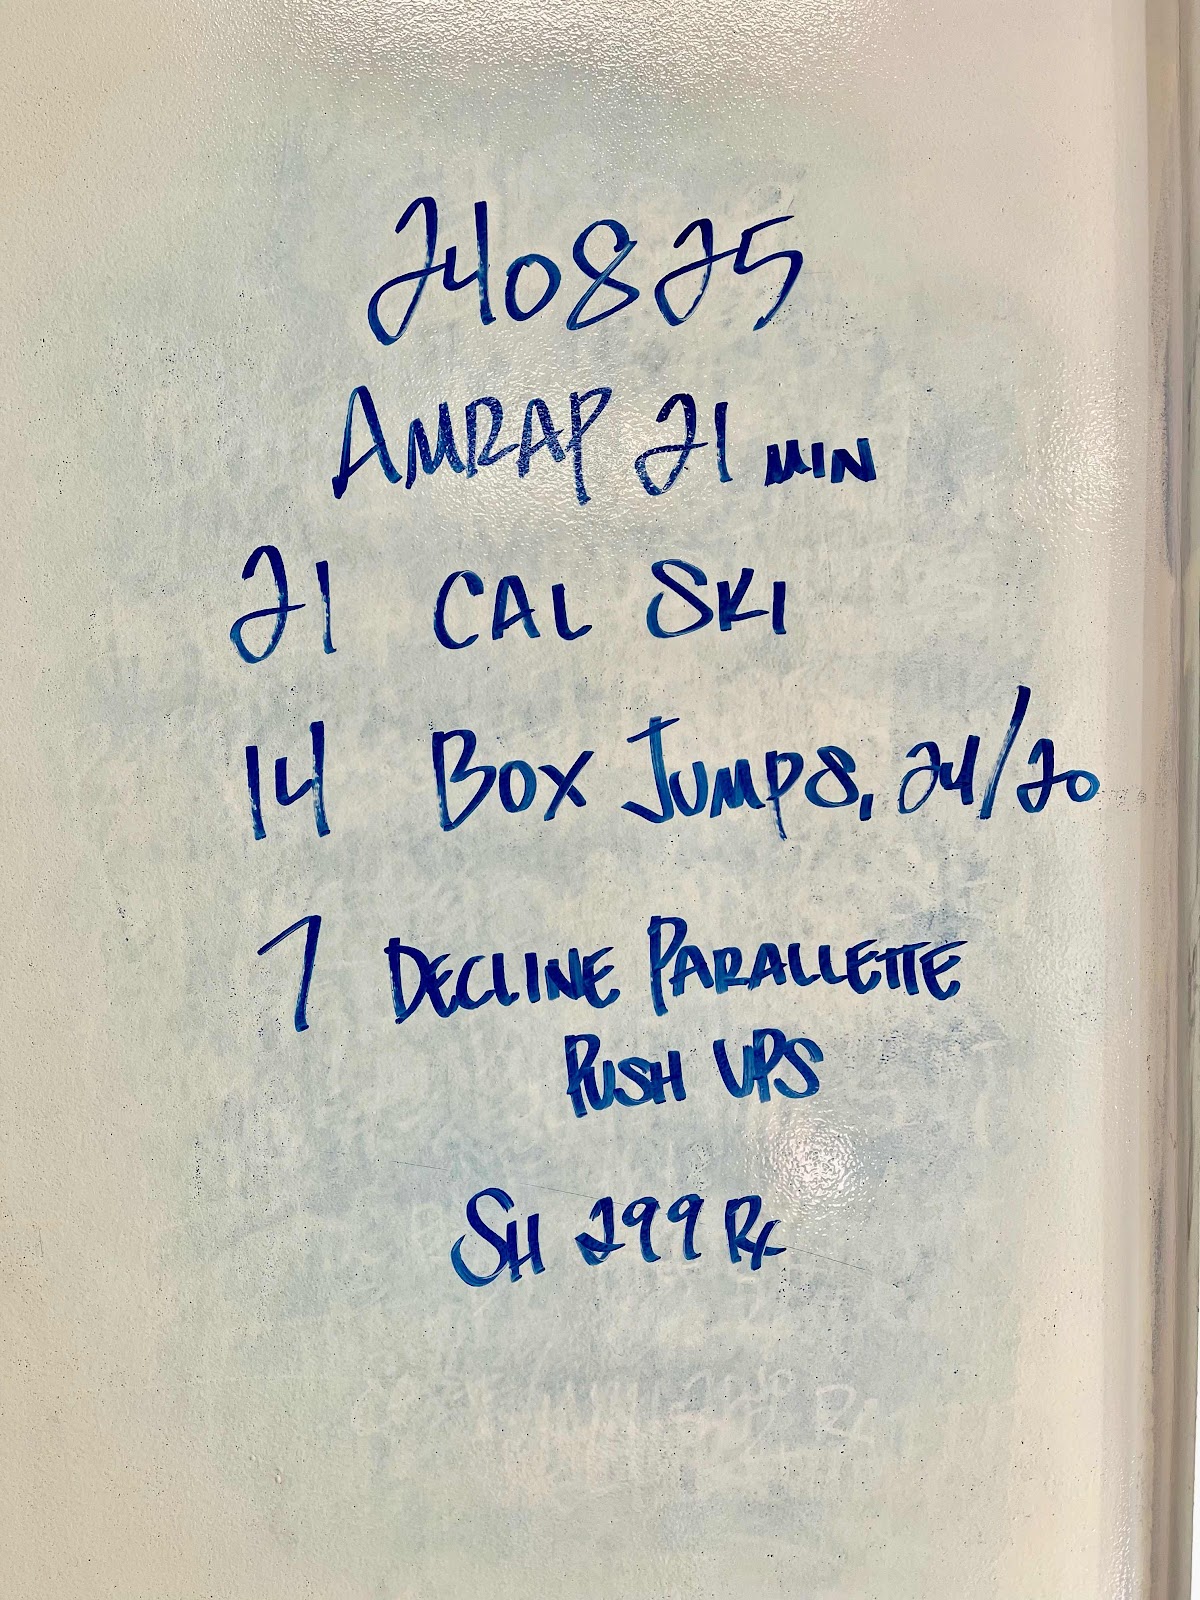 240825
AMRAP 21 MIN
21 CAL SKI
14 BOX JUMPS, 24/20
7 DECLINE PARALLETTE
PUSH UPS
SH 299 Rx